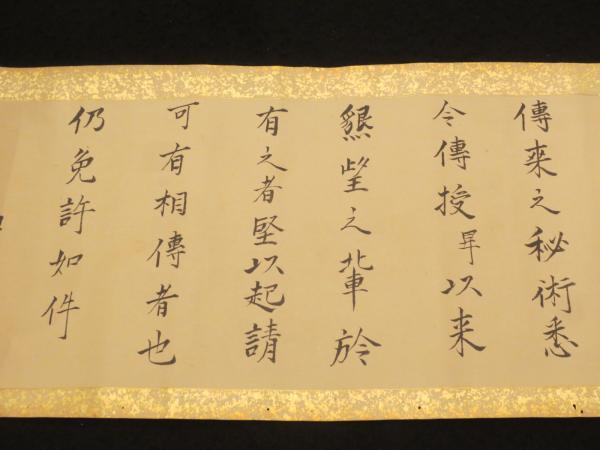 傳来之秘術悉
令傳授畢以来
懇望之輩於
有之者堅以起請
可有相傳者也
仍免許如件